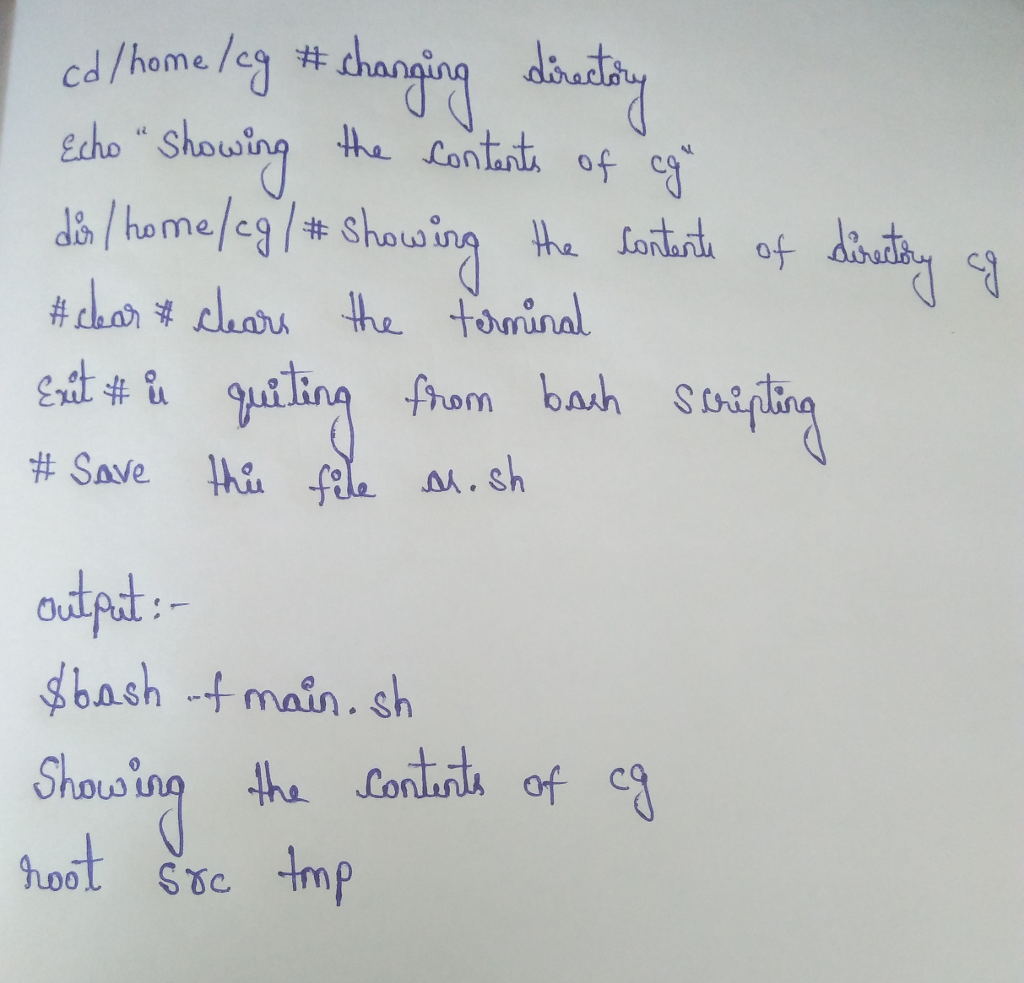 cd/home/cg # changing directory
Echo "Showing the contents of cg"
dir/home/cg/# Showing the contents of directory cg
# clear # clears the terminal
Exit # is quiting from bash scripting
# Save this file as.sh
output:-
$bash -f main.sh
Showing the contents of cg
root src tmp